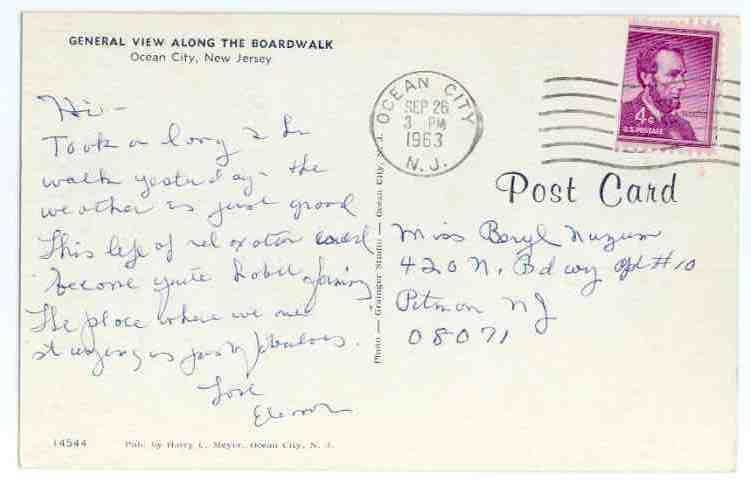 GENERAL VIEW ALONG THE BOARDWALK
Ocean City, New Jersey
Hi -
Took a long 2 hr
walk yesterday - the
weather is just grand
This life of relaxation could
become quite habit forming
The place where we are
staying is just fabulous.
Love
Eleanor
14544
Pub. by Harry C. Meyer, Ocean City, N. J.
Photo — Grainger Studio — Ocean City, N. J.
OCEAN CITY
SEP 26
3 PM
1963
N. J.
4¢
U.S. POSTAGE
Post Card
Miss Beryl Nuzum
420 N. Bdwy Apt #10
Pitman NJ
08071